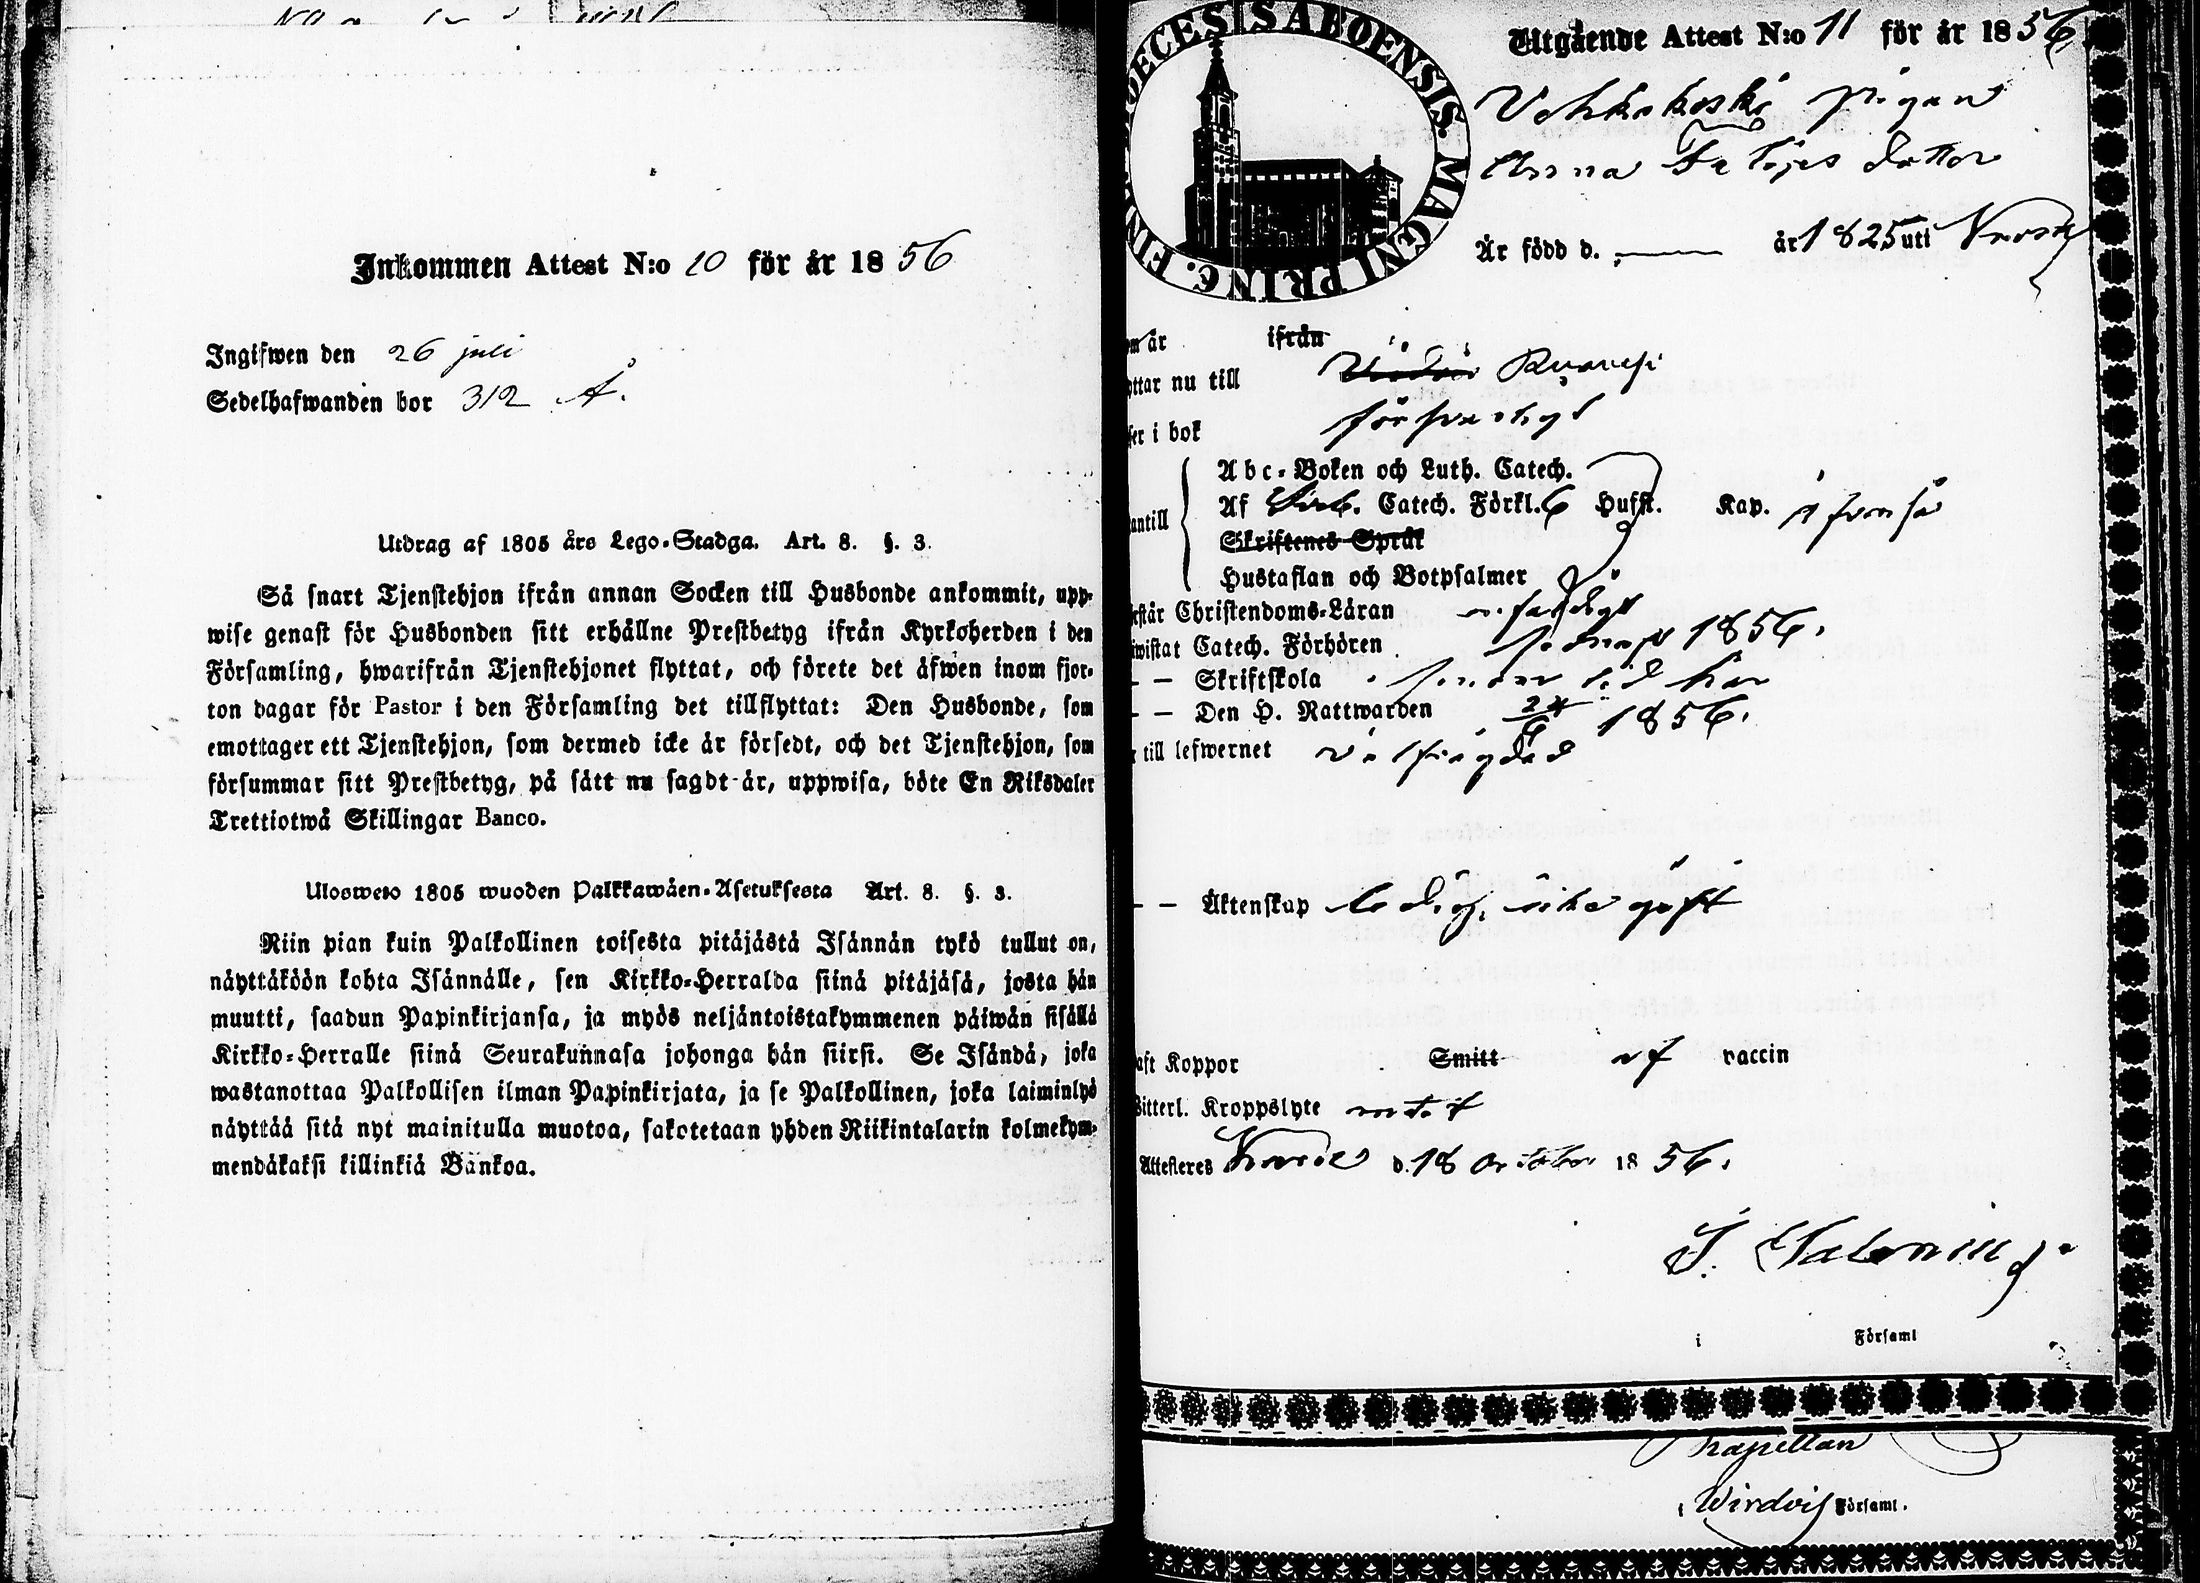 Inkommen Attest N:o 10 för år 1856
Ingifwen den 26 juli
Sedelhafwanden bor 312 Å.
Utdrag af 1805 års Lego-Stadga. Art. 8. §. 3.
Så snart Tjenstehjon ifrån annan Socken till Husbonde ankommit, upp-
wise genast för Husbonden sitt erhållne Prestbetyg ifrån Kyrkoherden i den
Församling, hwarifrån Tjenstehjonet flyttat, och förete det äfwen inom fjor-
ton dagar för Pastor i den Församling det tillflyttat: Den Husbonde, som
emottager ett Tjenstehjon, som dermed icke är försedt, och det Tjenstehjon, som
försummar sitt Prestbetyg, på sätt nu sagdt är, uppwisa, böte En Riksdaler
Trettiotwå Skillingar Banco.
Ulosweto 1805 wuoden Palkkawäen-Asetuksesta Art. 8. §. 3.
Niin pian kuin Palkollinen toisesta pitäjästä Isännän tykö tullut on,
näyttäköön kohta Isännälle, sen Kirkko-Herralda siinä pitäjäsä, josta hän
muutti, saadun Papinkirjansa, ja myös neljäntoistakymmenen päiwän sisällä
Kirkko-Herralle siinä Seurakunnasa johonga hän siirsi. Se Isändä, joka
wastanottaa Palkollisen ilman Papinkirjata, ja se Palkollinen, joka laiminlyö
näyttää sitä nyt mainitulla muotoa, sakotetaan yhden Riikintalarin kolmekym-
mendäkaksi killinkiä Bankoa.
DIOECESIS ABOENSIS. MAGNI PRINC. FIN
Utgående Attest N:o 11 för år 1856.
Vehkakoski pigan
Anna dotter
Är född d. — år 1825 uti
är ifrån
ttar nu till Ruovesi
ser i bok försvarligt
antill
Abc-Boken och Luth. Catech.
Af Catech. Förkl. 6 Hufst. Kap.
Skriftenes Språk
Hustaflan och Botpsalmer
rstår Christendoms-Läran
iwistat Catech. Förhören 1856.
— — Skriftskola
— — Den H. Nattwarden 24/6 1856.
till lefwernet välfrägdad
— — Äktenskap ledig, icke gift
aft Koppor Smitt af vaccin
Witterl. Kroppslyte
Attesteres d. 18 October 1856.
i Församl
Kapellan
i Wirdois Församl.